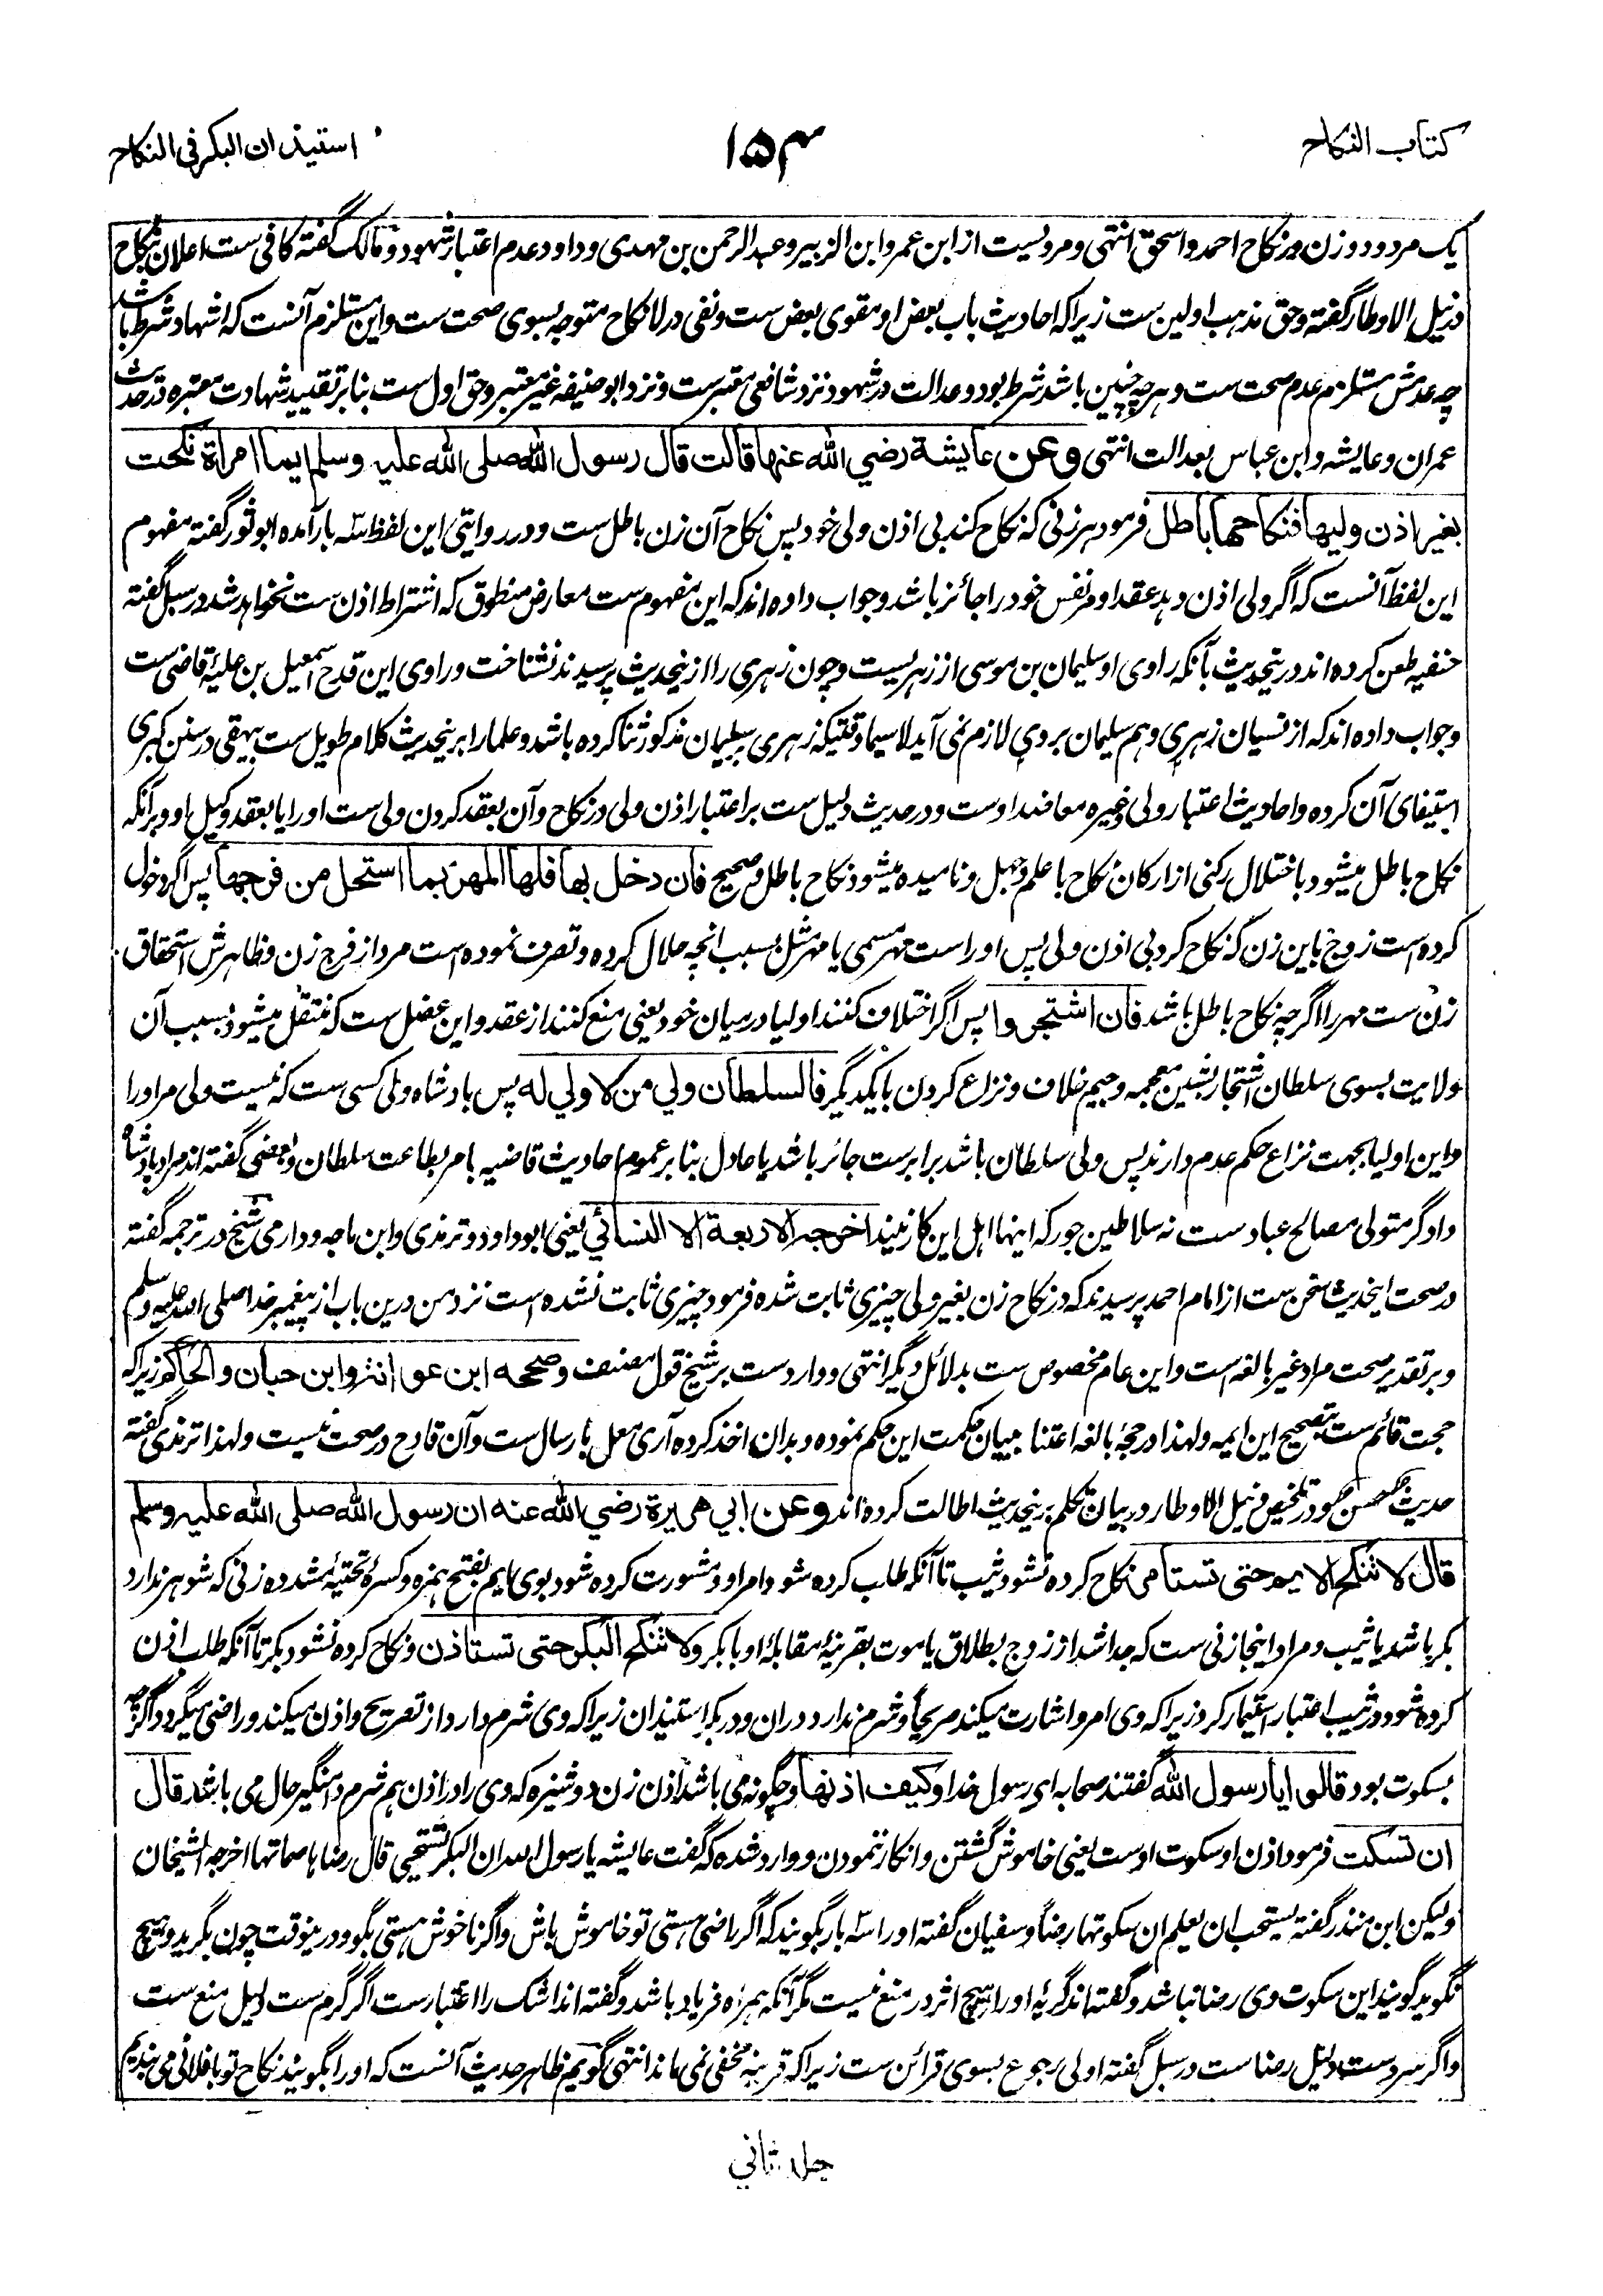 کتاب النکاح
۱۵۴
استیذان البکر فی النکاح
یک مرد و دو زن در نکاح احمد و اسحق انتهی و مرویست از ابن عمر و ابن الزبیر و عبد الرحمن بن مهدی و داود عدم اعتبار شهود و مالک گفته کافی ست اعلان نکاح
در نیل الاوطار گفته و حق مذهب اولین ست زیرا که احادیث باب بعض او مقوی بعض ست و نفی در لا نکاح متوجه بسوی صحت ست و این مستلزم آنست که اشهاد شرط باشد
چه عدمش مستلزم عدم صحت ست و هرچه چنین باشد شرط بود و عدالت در شهود نزد شافعی معتبرست و نزد ابو حنیفه غیر معتبر و حق اول ست بنا بر تقیید شهادت معتبره در حدیث
عمران و عایشه و ابن عباس بعدالت انتهی وعن عایشة رضي الله عنها قالت قال رسول الله صلی الله علیه وسلم ایما امراة نکحت
بغیر اذن ولیها فنکاحها باطل فرمود هر زنی که نکاح کند بی اذن ولی خود پس نکاح آن زن باطل ست و در روایتی این لفظ سه بار آمده ابو ثور گفته مفهوم
این لفظ آنست که اگر ولی اذن دهد عقد او مر نفس خود را جائز باشد و جواب داده اند که این مفهوم ست معارض منطوق که اشتراط اذن ست نخواهد شد در سبل گفته
حنفیه طعن کرده اند درینحدیث بآنکه راوی او سلیمان بن موسی از زهریست و چون زهری را ازینحدیث پرسیدند نشناخت و راوی این قدح اسمعیل بن علیهٔ قاضی ست
و جواب داده اند که از نسیان زهری وهم سلیمان بروی لازم نمی آید لاسیما وقتیکه زهری بر سلیمان مذکور ثنا کرده باشد و علما را برینحدیث کلام طویل ست بیهقی در سنن کبری
استیفای آن کرده و احادیث اعتبار ولی و غیره معاضد اوست و در حدیث دلیل ست بر اعتبار اذن ولی در نکاح و آن بعقد کردن ولی ست اورا یا بعقد وکیل او و برآنکه
نکاح باطل میشود باختلال رکنی از ارکان نکاح با علم و جهل و نامیده میشود نکاح باطل و صحیح فان دخل بها فلها المهر بما استحل من فرجها پس اگر دخول
کرده ست زوج باین زن که نکاح کرد بی اذن ولی پس اوراست مهر مسمی یا مهر مثل بسبب انچه حلال کرده و تصرف نموده است مرد از فرج زن و ظاهرش استحقاق
زن ست مهر را اگرچه نکاح باطل باشد فان اشتجروا پس اگر اختلاف کنند اولیا درمیان خود یعنی منع کنند از عقد و این عضل ست که منتقل میشود بسبب آن
ولایت بسوی سلطان اشتجار بشین معجمه و جیم خلاف و نزاع کردن بایکدیگر فالسلطان ولي من لا ولي له پس بادشاه ولی کسی ست که نیست ولی مر اورا
و این اولیا بجهت نزاع حکم عدم دارند پس ولی سلطان باشد برابرست جائر باشد یا عادل بنا بر عموم احادیث قاضیه بامر بطاعت سلطان و بعضی گفته اند مراد پادشاه
دادگر متولی مصالح عباد ست نه سلاطین جور که اینها اهل این کار نیند اخرجه الاربعة الا النسائي یعنی ابو داود و ترمذی و ابن ماجه و دارمی شیخ در ترجمه گفته
در صحت اینحدیث سخن ست از امام احمد پرسیدند که در نکاح زن بغیر ولی چیزی ثابت شده فرمود چیزی ثابت نشده است نزد من درین باب از پیغمبر خدا صلی الله علیه وسلم
و بر تقدیر صحت مراد غیر بالغه است و این عام مخصوص ست بدلائل دیگر انتهی و واردست بر شیخ قول مصنف وصححه ابن عوانة وابن حبان والحاکم زیرا که
حجت قائم ست بتصحیح این ایمه و لهذا در حجهٔ بالغه اعتنا ببیان حکمت این حکم نموده و بدان اخذ کرده آری معل بارسال ست و آن قادح در صحت نیست و لهذا ترمذی گفته
حدیث حسن و در تلخیص و نیل الاوطار در بیان تکلم برینحدیث اطالت کرده اند وعن ابي هریرة رضي الله عنه ان رسول الله صلی الله علیه وسلم
قال لا تنکح الایم حتی تستامر نکاح کرده نشود ثیب تا آنکه طلب کرده شود امر او و مشورت کرده شود بوی ایم بفتح همزه و کسرهٔ تحتیهٔ مشدده زنی که شوهر ندارد
بکر باشد یا ثیب و مراد اینجا زنی ست که جدا شد از زوج بطلاق یا موت بقرینهٔ مقابلهٔ او با بکر ولا تنکح البکر حتی تستاذن و نکاح کرده نشود بکر تا آنکه طلب اذن
کرده شود و در ثیب اعتبار استیمار کرد زیرا که وی امر و اشارت میکند صریحا و شرم ندارد دران و در بکر استیذان زیرا که وی شرم دارد از تصریح و اذن میکند و راضی میگردد اگرچه
بسکوت بود قالوا یا رسول الله گفتند صحابه ای رسول خدا وکیف اذنها و چگونه می باشد اذن زن دوشیزه که وی را در اذن هم شرم دامنگیر حال می باشد قال
ان تسکت فرمود اذن او سکوت اوست یعنی خاموش گشتن و انکار ننمودن و وارد شده که گفت عایشه یا رسول الله ان البکر تستحیی قال رضاها صماتها اخرجه الشیخان
ولیکن ابن منذر گفته یستحب ان یعلم ان سکوتها رضا و سفیان گفته اورا سه بار بگویند که اگر راضی هستی تو خاموش باش و اگر ناخوش هستی بگو و درینوقت چون بگرید و هیچ
نگوید گویند این سکوت وی رضا نباشد و گفته اند گریهٔ او را هیچ اثر در منع نیست مگر آنکه همراه فریاد باشد و گفته اند اشک را اعتبارست اگر گرم ست دلیل منع ست
و اگر سردست دلیل رضاست در سبل گفته اولی رجوع بسوی قرائن ست زیرا که قرینه مخفی نمی ماند انتهی گویم ظاهر حدیث آنست که اورا بگویند نکاح تو با فلانی می بندیم
جلد ثاني